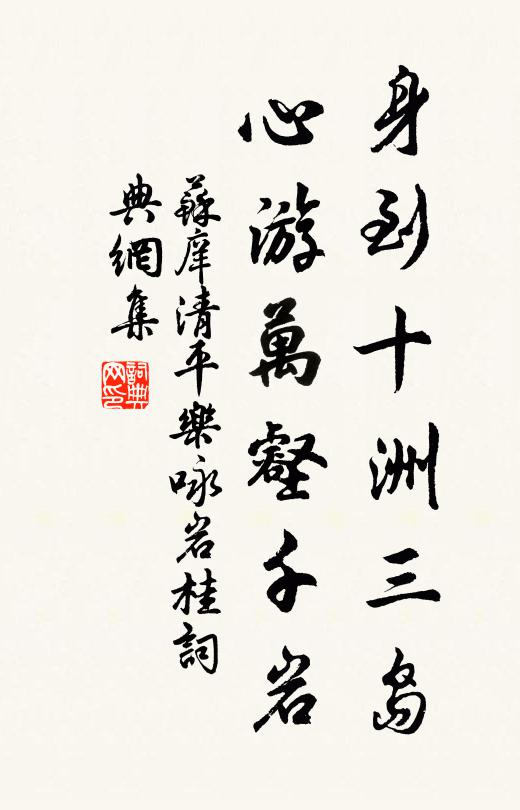 身到十洲三岛
心游萬壑千岩
蘇庠清平樂咏岩桂詞
典網集
詞典网印